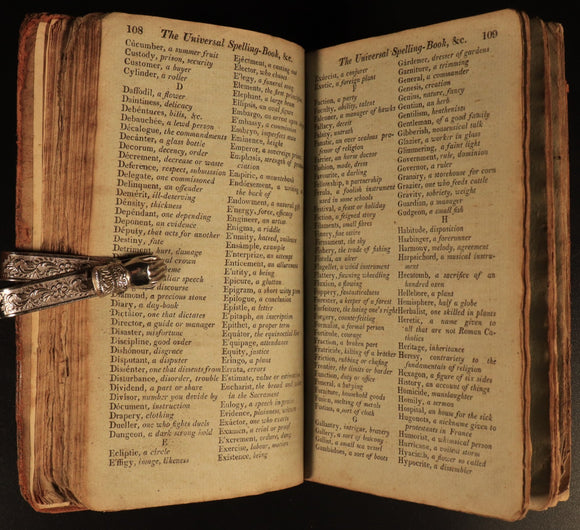 108
The Universal Spelling-Book, &c.
Cúcumber, a summer fruit
Custody, prison, security
Customer, a buyer
Cylinder, a roller
D
Daffodil, a flower
Daintiness, delicacy
Debéntures, bills, &c.
Debauchée, a lewd person
Décalogue, the commandments
Décanter, a glass bottle
Decorum, decency, order
Décrement, decrease or waste
Deference, respect, submission
Delegate, one commissioned
Delinquent, an offender
Demérit, ill-deserving
Dénsity, thickness
Depéndant, one depending
Deponent, an evidence
Députy, that acts for another
Destiny, fate
Detriment, hurt, damage
speech
discourse
Diamond, a precious stone
Diary, a day-book
Dictátor, one that dictates
Director, a guide or manager
Disaster, misfortune
Díscipline, good order
Dishónour, disgrace
Disputant, a disputer
Dissénter, one that dissents from
Disturbance, disorder, trouble
Dividend, a part or share
Divisor, number you divide by
Dócument, instruction
Drapery, clothing
Dueller, one who fights duels
Dungeon, a dark strong hold
E
Ecliptic, a circle
Effigy, image, likeness
Ejéctment, a casting out
Eléctor, who chooses
E'legy, a funeral song
Elements, the first principles
Elephant, a large beast
Ellipsis, an oval figure
Embárgo, an arrest upon ships
Embassy, a commission
Embryo, imperfect man
Eminence, height
Emperor, a sovereign prince
Emphasis, strength of pronunciation
Empiric, a mountebank
Endórsement, a writing on
the back of
Endowment, a natural gift
E'nergy, force, efficacy
Engineer, an artist
Enígma, a riddle
E'nmity, hatred, malice
Ensample, example
Enterprize, an attempt
Enticement, an allurement
E'ntity, a being
Epicure, a glutton
Epigram, a short witty poem
Epilogue, a conclusion
Epistle, a letter
E'pitaph, an inscription
Epithet, a proper term
Equátor, the equinoctial line
E'quipage, attendance
Equity, justice
Eringo, a plant
Errata, errors
E'stimate, value or estimation
Eucharist, the bread and wine
in the Sacrament
Eulogy, a speech in praise
Evidence, plainness, witness
Exáctor, one who exacts
Examen, a trial or proof
E'xcrement, ordure, dung
Exercise, labour, motion
Existence, being
The Universal Spelling-Book, &c.
109
Exórcist, a conjurer
Exotic, a foreign plant
F
Faction, a party
Fáculty, ability, talent
Falconer, a manager of hawks
Fallacy, deceit
Falsity, untruth
Fanatic, an over zealous professor
of religion
Farrier, an horse doctor
Fashion, made, dress
Favourite, a darling
Fellowship, a partnership
Ferula, a foolish instrument
used in some schools
Festival, a feast or holiday
Fiction, a feigned story
Filaments, small fibres
Finery, fine attire
Firmament, the sky
Fishery, the trade of fishing
Fistula, an ulcer
Flagellet, a wind instrument
Flattery, fawning wheedling
Fluxion, a flowing
Foppery, fantasticalness
Forester, a keeper of forest
Forfeiture, the losing one's right
Forgery, counterfeiting
Formalist, a formal person
Fortitude, courage
Fraction, a broken part
Fratricide, killing of a brother
Friction, rubbing or chafing
Frontier, the limits or border
Function, duty or office
Funeral, a burying
Furniture, household goods
Fusion, melting of metals
Fustian, a sort of cloth
G
Gallantry, intrigue, bravery
Gallery, a sort of balcony
Galliot, a small sea vessel
Gambadoes, a sort of boots
Gárdener, dresser of gardens
Garniture, a trimming
General, a commander
Genesis, creation
Genius, nature, fancy
Gentian, an herb
Gentilism, heathenism
Gentleman, of a good family
Gibberish, nonsensical talk
Glazier, a worker in glass
Glimmering, a faint light
Government, rule, dominion
Governor, a ruler
Granary, a storehouse for corn
Grazier, one who feeds cattle
Gravity, sobriety, weight
Guardian, a manager
Gudgeon, a small fish
H
Habitude, disposition
Harbinger, a forerunner
Harmony, melody, agreement
Harpsichord, a musical instrument
Hecatomb, a sacrifice of an
hundred oxen
Hellebore, a plant
Hemisphere, half a globe
Herbalist, one skilled in plants
Heretic, a name given to
all that are not Roman Catholics
Heritage, inheritance
Heresy, contrariety to the
fundamentals of religion
Hexagon, a figure of six sides
History, an account of things
Homicide, manslaughter
Homily, a sermon
Hospital, an house for the sick
Hugonots, a nickname given to
protestants in France
Humorist, a whimsical person
Hurricane, a violent storm
Hyacinth, a flower so called
Hypocrite, a dissembler